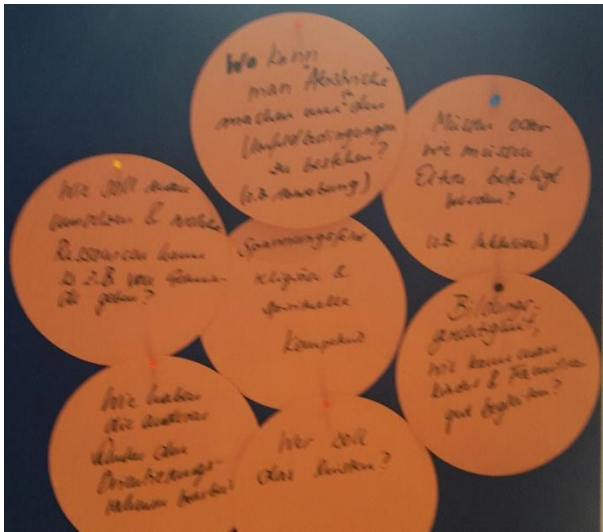 Wo kann
man "Abstriche"
machen um in den
Umfeldbedingungen
zu bestehen?
(z.B. )
Müssen oder
wie müssen
Eltern beteiligt
werden?
(z.B. Inklusion)
Wie soll man
umsetzen & welche
Ressourcen kann
es z.B. von Gemein-
de geben?
Spannungsfeld
religiöse &
spirituelle
Kompetenz
Bildungs-
gerechtigkeit,
wie kann man
Kinder & Familien
gut begleiten?
Wie haben
die anderen
Länder den
Orientierungs-
rahmen
Wer soll
das leisten?